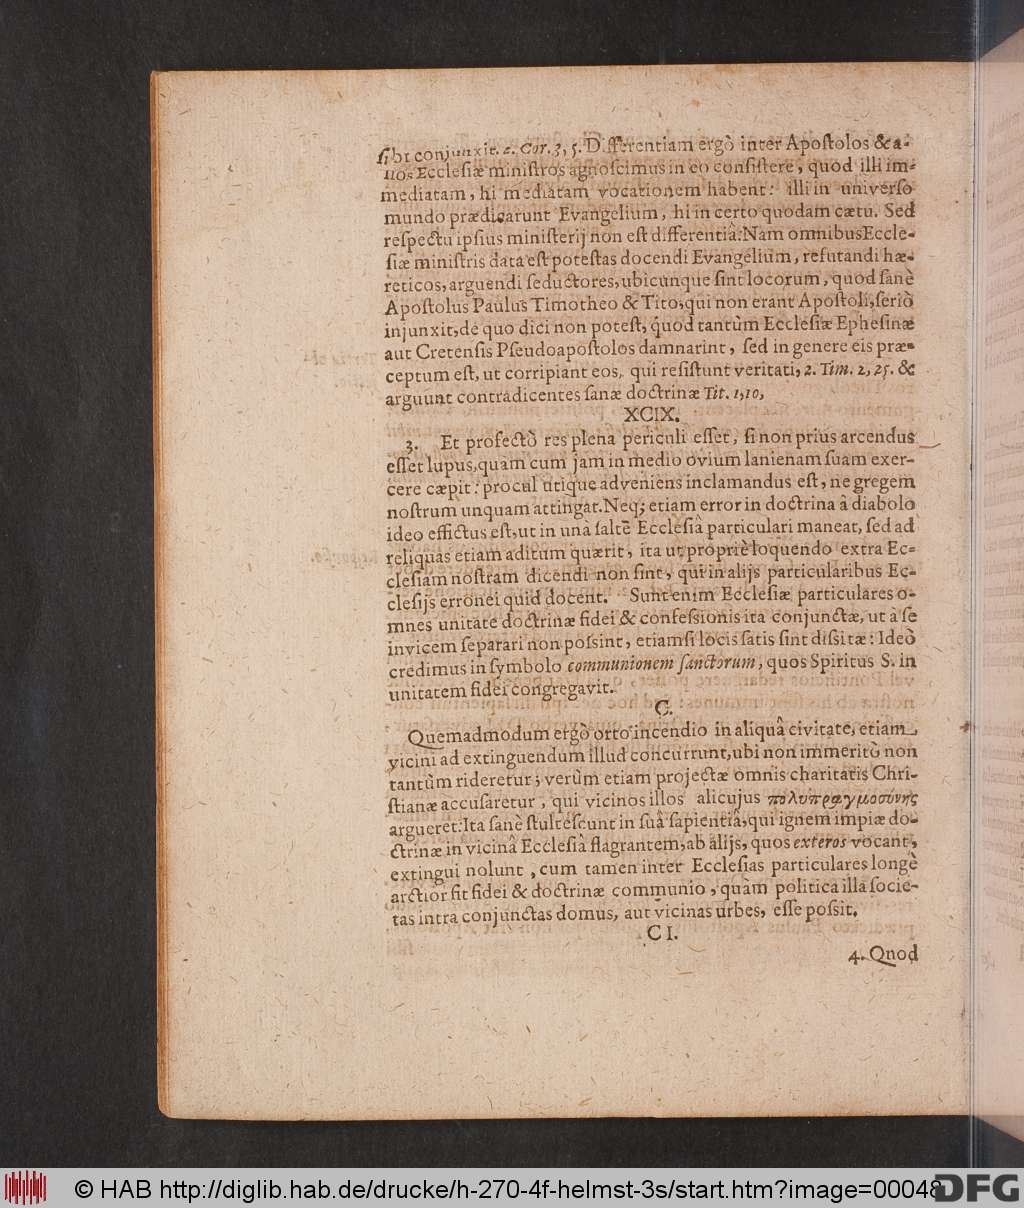 ſibi conjunxit. 2. Cor. 3, 5. Differentiam ergò inter Apoſtolos & a-
lios Eccleſiæ miniſtros agnoſcimus in eo conſiſtere, quod illi im-
mediatam, hi mediatam vocationem habent: illi in univerſo
mundo prædicarunt Evangelium, hi in certo quodam cætu. Sed
reſpectu ipſius miniſterij non eſt differentia: Nam omnibus Eccle-
ſiæ miniſtris data eſt poteſtas docendi Evangelium, refutandi hæ-
reticos, arguendi ſeductores, ubicunque ſint locorum, quod ſanè
Apoſtolus Paulus Timotheo & Tito, qui non erant Apoſtoli, ſeriò
injunxit, de quo dici non poteſt, quod tantùm Eccleſiæ Epheſinæ
aut Cretenſis Pſeudoapoſtolos damnarint, ſed in genere eis præ-
ceptum eſt, ut corripiant eos, qui reſiſtunt veritati, 2. Tim. 2, 25. &
arguunt contradicentes ſanæ doctrinæ Tit. 1, 10,
XCIX.
3. Et profectò res plena periculi eſſet, ſi non prius arcendus
eſſet lupus, quàm cum jam in medio ovium lanienam ſuam exer-
cere cæpit: procul utique adveniens inclamandus eſt, ne gregem
noſtrum unquam attingat. Neq; etiam error in doctrina â diabolo
ideo effictus eſt, ut in unâ ſaltē Eccleſiâ particulari maneat, ſed ad
reliquas etiam aditum quærit, ita ut propriè loquendo extra Ec-
cleſiam noſtram dicendi non ſint, qui in alijs particularibus Ec-
cleſijs erronei quid docent. Sunt enim Eccleſiæ particulares o-
mnes unitate doctrinæ fidei & confeſsionis ita conjunctæ, ut à ſe
invicem ſeparari non poſsint, etiamſi locis ſatis ſint diſsitæ: Ideò
credimus in ſymbolo communionem ſanctorum, quos Spiritus S. in
unitatem fidei congregavit.
C.
Quemadmodum ergò orto incendio in aliquâ civitate, etiam
vicini ad extinguendum illud concurrunt, ubi non immeritò non
tantùm rideretur; verùm etiam projectæ omnis charitatis Chri-
ſtianæ accuſaretur, qui vicinos illos alicujus πολυπραγμοσύνης
argueret: Ita ſanè ſtulteſcunt in ſuâ ſapientiâ, qui ignem impiæ do-
ctrinæ in vicinâ Eccleſiâ flagrantem, ab alijs, quos exteros vocant,
extingui nolunt, cum tamen inter Eccleſias particulares longè
arctior ſit fidei & doctrinæ communio, quàm politica illa ſocie-
tas intra conjunctas domus, aut vicinas urbes, eſſe poſsit.
CI.
4. Quod
© HAB http://diglib.hab.de/drucke/h-270-4f-helmst-3s/start.htm?image=00048
DFG